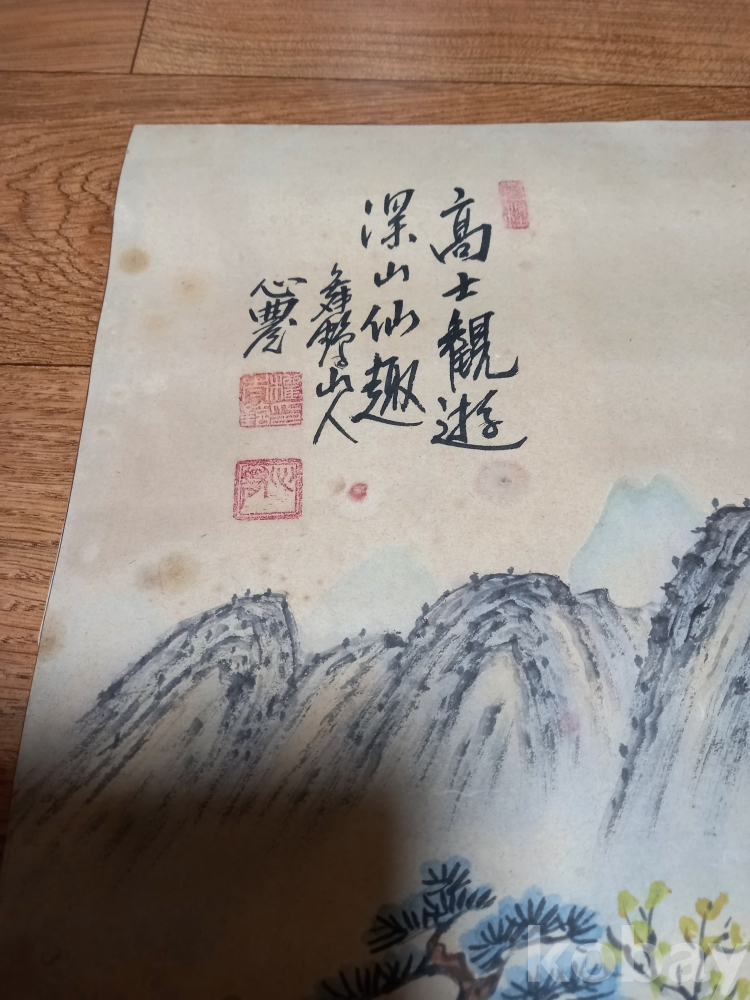 高士觀遊
深山仙趣
舞鶴山人
心農
kobay